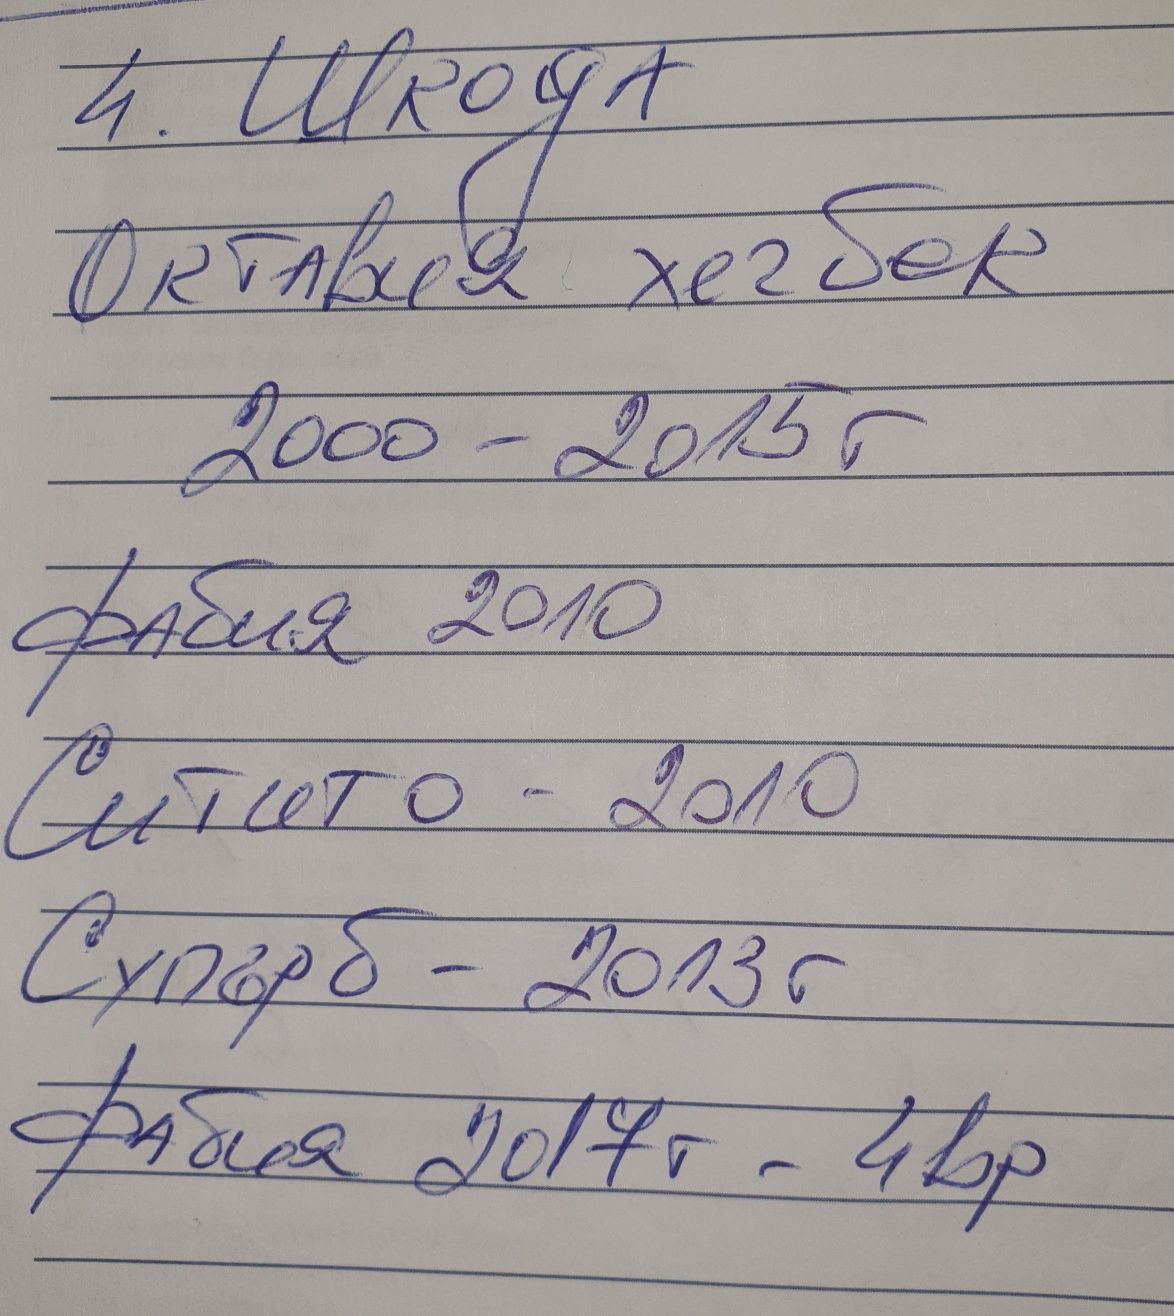 4. Шкода
Октавия хегбек
2000 - 2015г
Фабия 2010
Ситиго - 2010
Супърб - 2013г
Фабия 2017г - 4вр